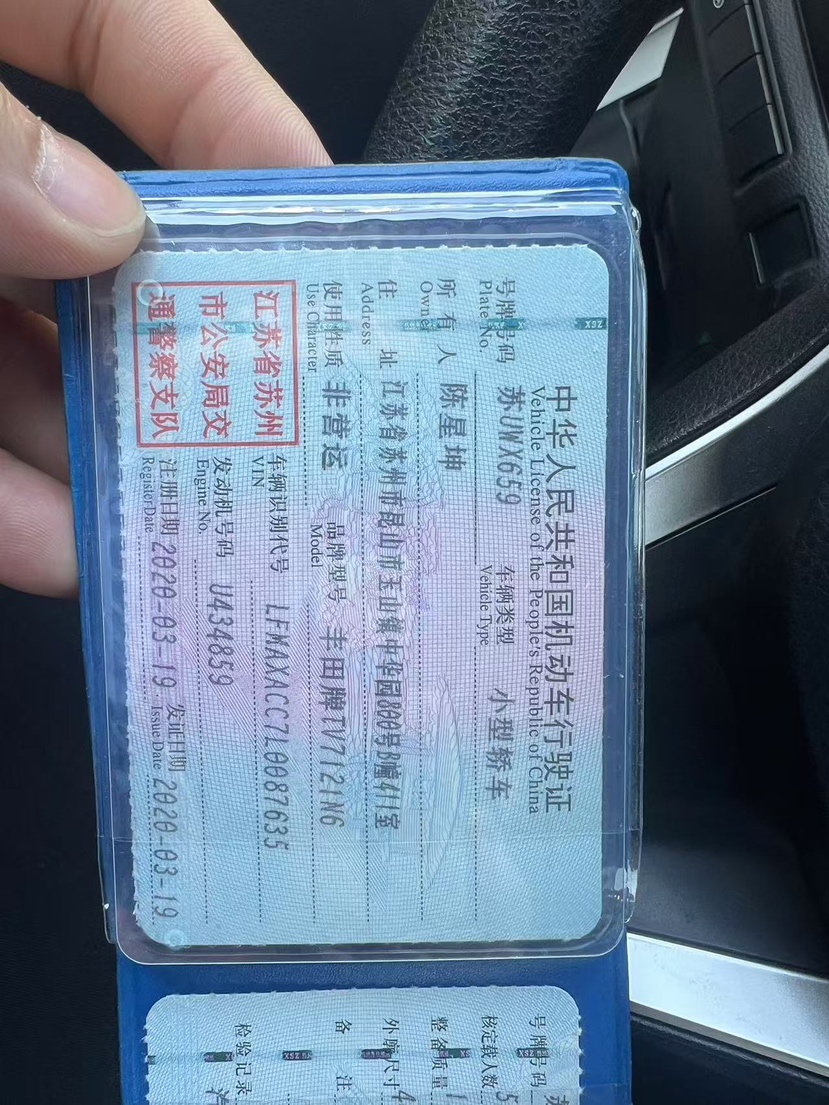 中华人民共和国机动车行驶证
Vehicle License of the People's Republic of China
号牌号码 苏UWX659 车辆类型 小型轿车
Plate No. Vehicle Type
所有人 陈星坤
Owner
住址 江苏省苏州市昆山市玉山镇中华园800号B幢411室
Address
使用性质 非营运 品牌型号 丰田牌TV7121N6
Use Character Model
江苏省苏州
市公安局交
通警察支队
车辆识别代号 LFMAXACC7L0087635
VIN
发动机号码 U434859
Engine No.
注册日期 2020-03-19 发证日期 2020-03-19
Register Date Issue Date
号牌号码 苏
核定载人数 5
整备质量 1
外廓尺寸 4
备注
检验记录
ZSX